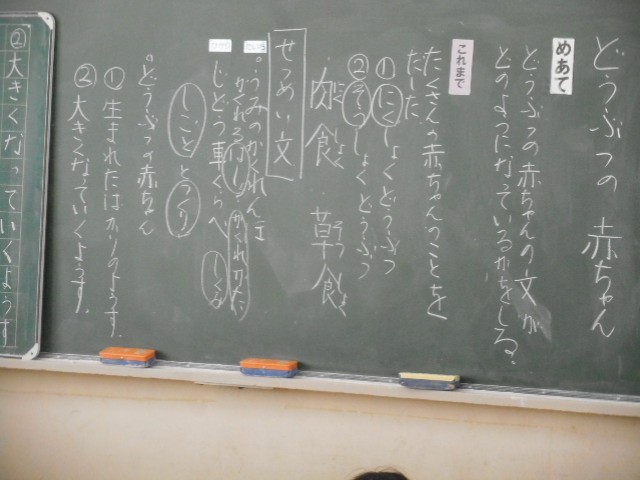 どうぶつの 赤ちゃん
めあて
どうぶつの赤ちゃんの文が
どのようになっているかをしる。
これまで
たくさんの赤ちゃんのことを
だした
①にくしょくどうぶつ
②そうしょくどうぶつ
肉食 草食
にくしょく そうしょく
せつめい文
。うみのかくれんぼ
かくれるばしょ かくれかた
。じどう車くらべ
しごと つくり
。どうぶつの赤ちゃん
①生まれたばかりのようす。
②大きくなっていくようす。
②大きくなっていくようす